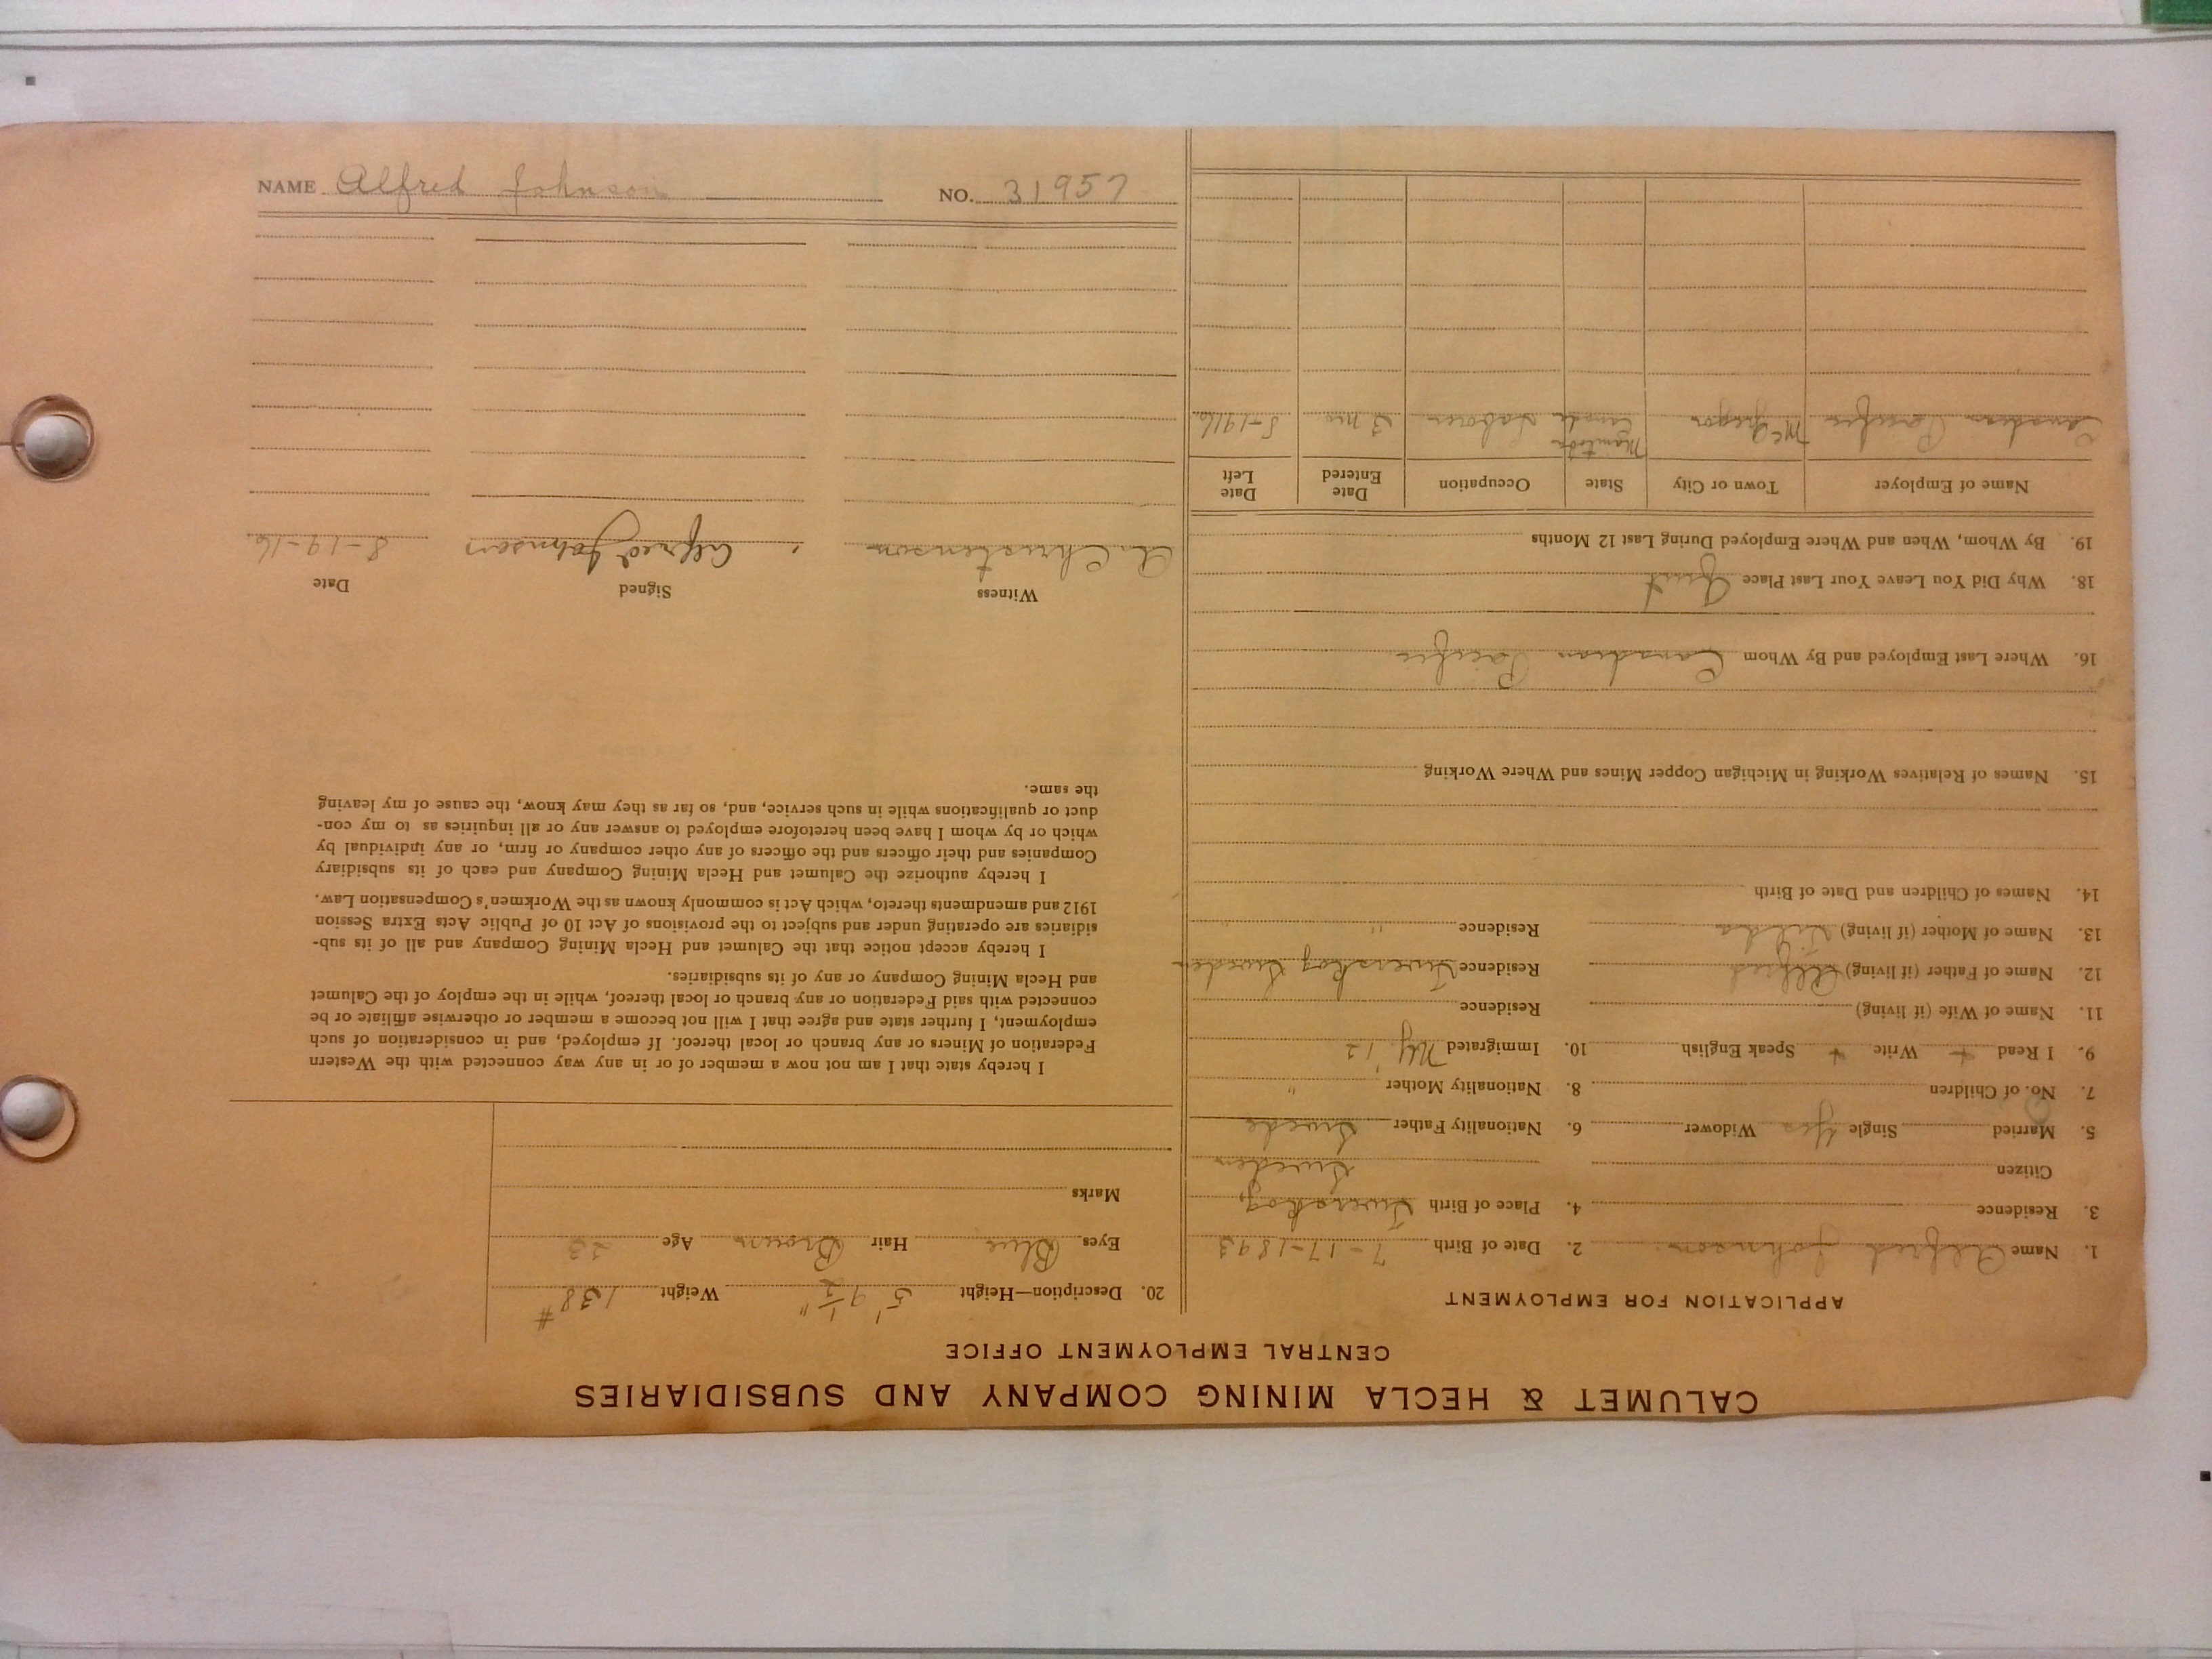 NAME Alfred Johnson NO. 31957
CALUMET & HECLA MINING COMPANY AND SUBSIDIARIES
CENTRAL EMPLOYMENT OFFICE
APPLICATION FOR EMPLOYMENT
1. Name Alfred Johnson 2. Date of Birth 7-17-1893
3. Residence 4. Place of Birth Tiverskog,
Citizen Sweden
5. Married Single Yes Widower 6. Nationality Father Swede
7. No. of Children 8. Nationality Mother "
9. I Read + Write + Speak English 10. Immigrated '12
11. Name of Wife (if living) Residence
12. Name of Father (if living) Alfred Residence Tiverskog Sweden
13. Name of Mother (if living) Residence " "
14. Names of Children and Date of Birth
15. Names of Relatives Working in Michigan Copper Mines and Where Working
16. Where Last Employed and By Whom Canadian Pacific
18. Why Did You Leave Your Last Place Quit
19. By Whom, When and Where Employed During Last 12 Months
Name of Employer Town or City State Occupation Date Entered Date Left
Canadian Pacific McGregor Manitoba Canada Laborer 3 mo 8-1916
20. Description—Height 5' 9 1/2" Weight 138#
Eyes Blue Hair Brown Age 23
Marks
I hereby state that I am not now a member of or in any way connected with the Western
Federation of Miners or any branch or local thereof. If employed, and in consideration of such
employment, I further state and agree that I will not become a member or otherwise affiliate or be
connected with said Federation or any branch or local thereof, while in the employ of the Calumet
and Hecla Mining Company or any of its subsidiaries.
I hereby accept notice that the Calumet and Hecla Mining Company and all of its sub-
sidiaries are operating under and subject to the provisions of Act 10 of Public Acts Extra Session
1912 and amendments thereto, which Act is commonly known as the Workmen's Compensation Law.
I hereby authorize the Calumet and Hecla Mining Company and each of its subsidiary
Companies and their officers and the officers of any other company or firm, or any individual by
which or by whom I have been heretofore employed to answer any or all inquiries as to my con-
duct or qualifications while in such service, and, so far as they may know, the cause of my leaving
the same.
Witness Signed Date
A. Christenson Alfred Johnson 8-19-16